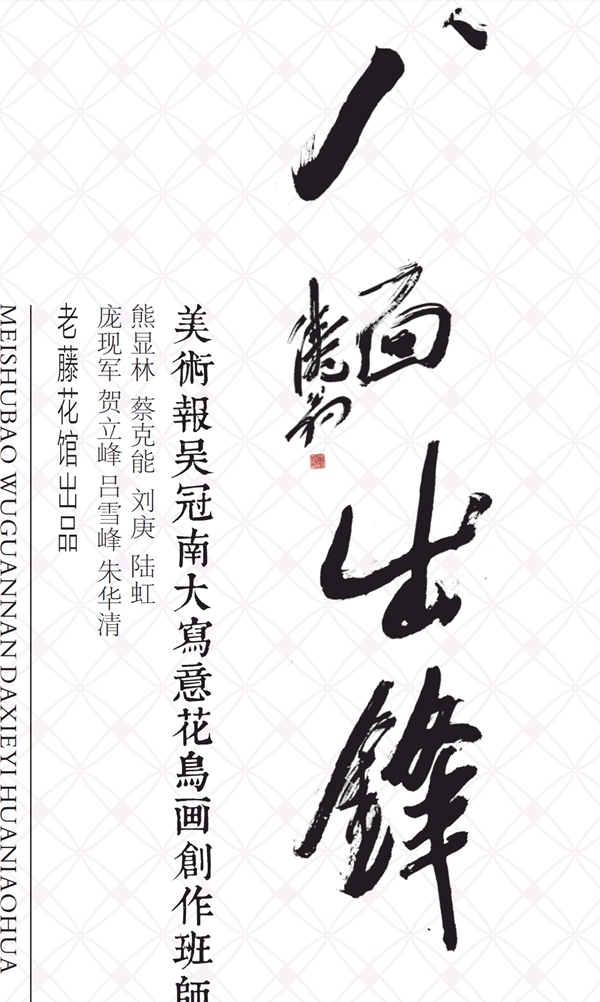 八面出锋
美術報吴冠南大寫意花鳥画創作班師
熊显林 蔡克能 刘庚 陆虹
庞现军 贺立峰 吕雪峰 朱华清
老藤花馆出品
MEISHUBAO WUGUANNAN DAXIEYI HUANIAOHUA